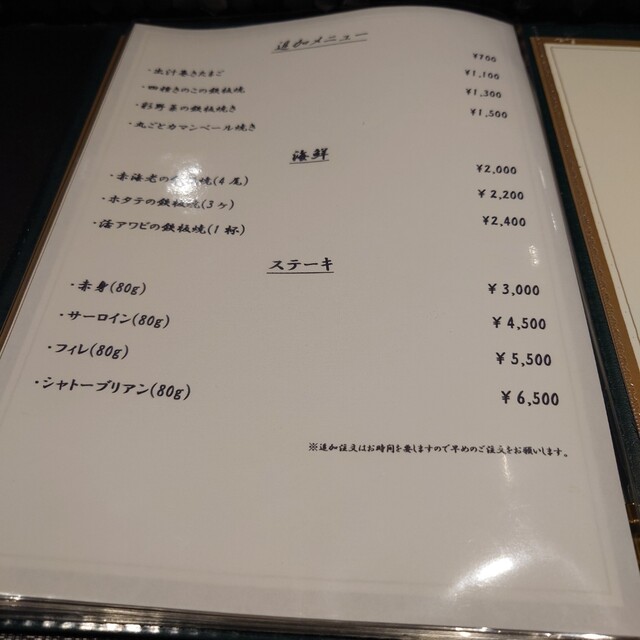 追加メニュー
・出汁巻きたまご ¥700
・四種きのこの鉄板焼 ¥1,100
・彩野菜の鉄板焼き ¥1,300
・丸ごとカマンベール焼き ¥1,500
海鮮
・赤海老の鉄板焼(4尾) ¥2,000
・ホタテの鉄板焼(3ヶ) ¥2,200
・活アワビの鉄板焼(1杯) ¥2,400
ステーキ
・赤身(80g) ¥3,000
・サーロイン(80g) ¥4,500
・フィレ(80g) ¥5,500
・シャトーブリアン(80g) ¥6,500
※追加注文はお時間を要しますので早めのご注文をお願いします。